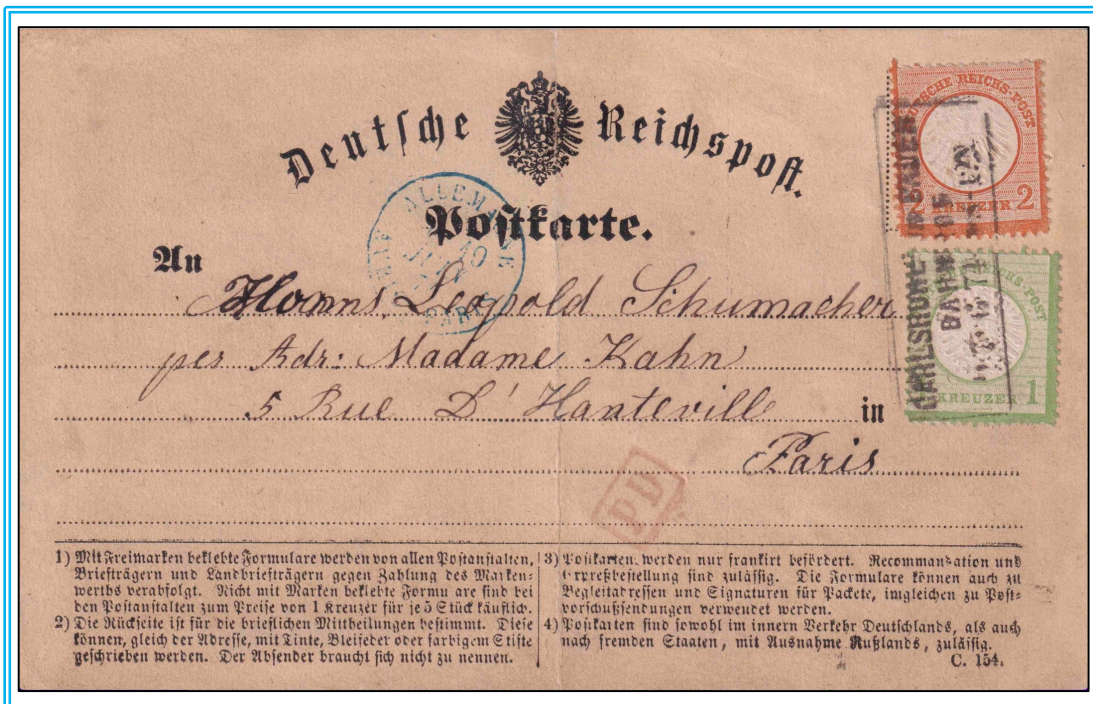 Deutsche Reichspost.
Postkarte.
An
Herrns Leopold Schumacher
per Adr: Madame Kahn
5 Rue D'Hauteville in
Paris
1) Mit Freimarken beklebte Formulare werden von allen Postanstalten,
Briefträgern und Landbriefträgern gegen Zahlung des Marken-
werths verabfolgt. Nicht mit Marken beklebte Formu are sind bei
den Postanstalten zum Preise von 1 Kreuzer für je 5 Stück käuflich.
2) Die Rückseite ist für die brieflichen Mittheilungen bestimmt. Diese
können, gleich der Adresse, mit Tinte, Bleifeder oder farbigem Stifte
geschrieben werden. Der Absender braucht sich nicht zu nennen.
3) Postkarten werden nur frankirt befördert. Recommandation und
Expreßbestellung sind zulässig. Die Formulare können auch zu
Begleitadressen und Signaturen für Packete, imgleichen zu Post-
vorschußsendungen verwendet werden.
4) Postkarten sind sowohl im innern Verkehr Deutschlands, als auch
nach fremden Staaten, mit Ausnahme Rußlands, zulässig.
C. 154.
DEUTSCHE REICHS-POST
2 KREUZER 2
REICHS-POST
KREUZER 1
CARLSRUHE
BAHN
ALLEMAGNE
10
PARIS
PD